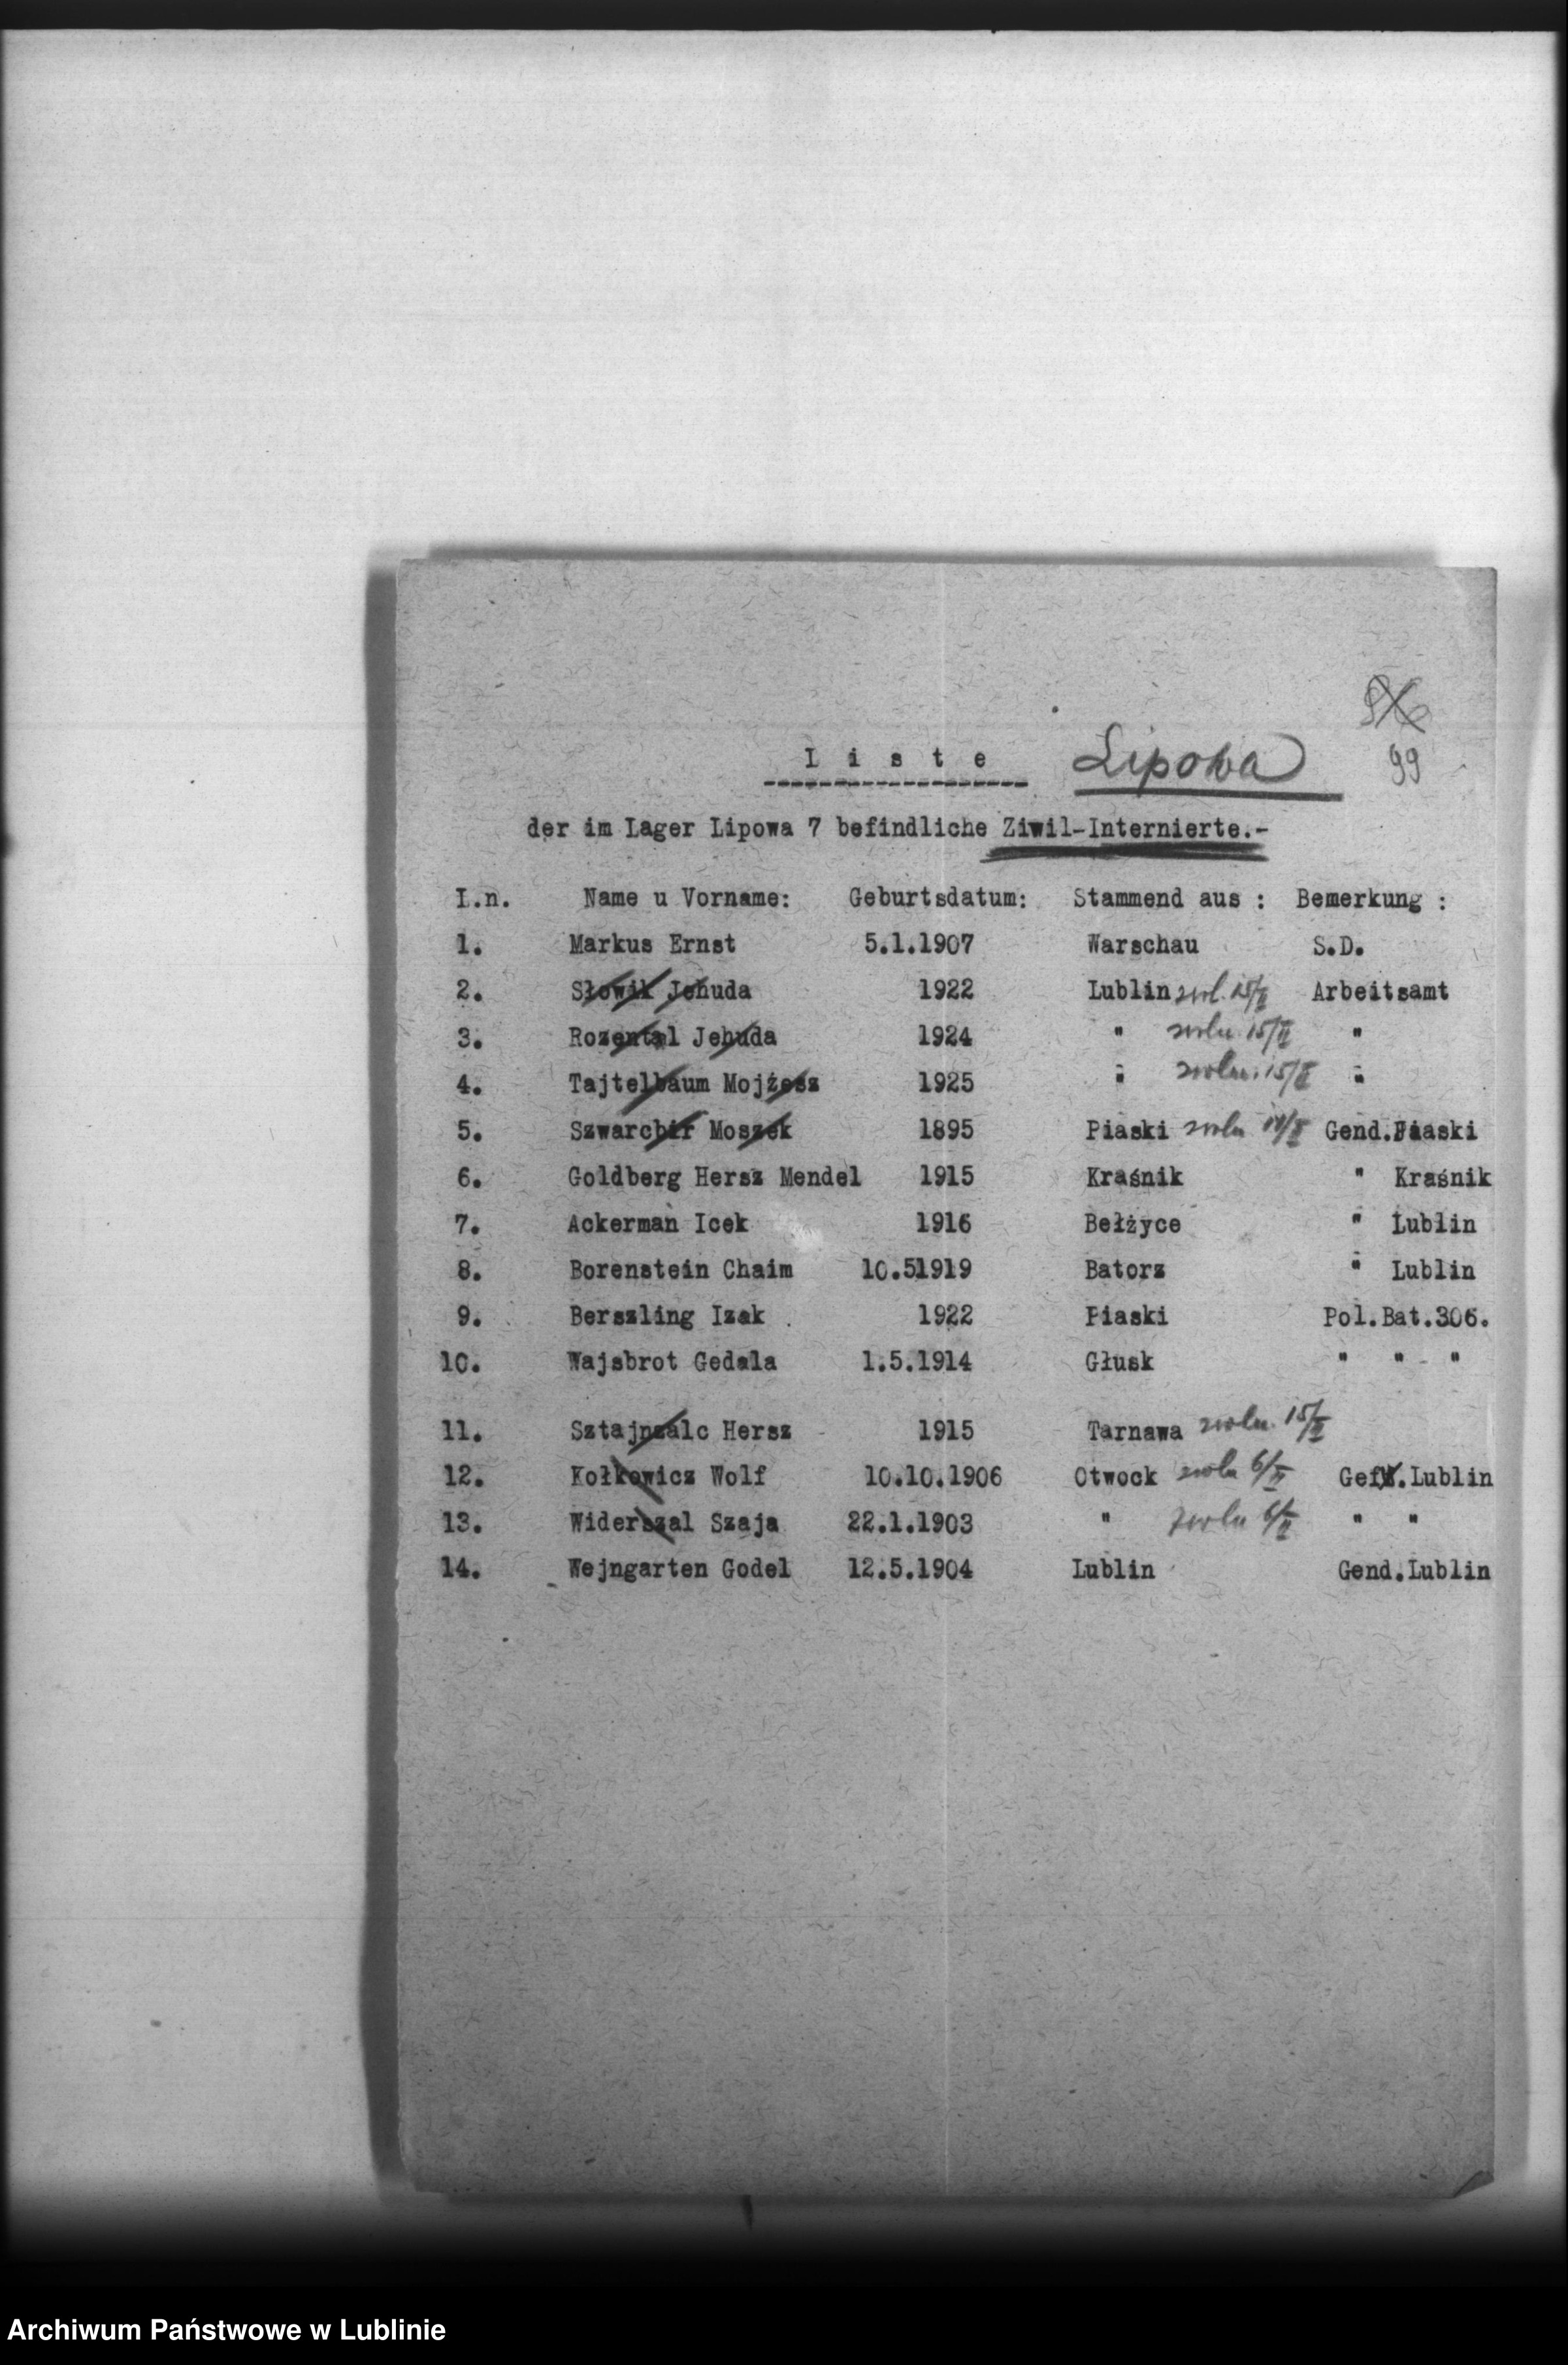 96
L i s t e Lipowa 99
der im Lager Lipowa 7 befindliche Ziwil-Internierte.-
L.n. Name u Vorname: Geburtsdatum: Stammend aus : Bemerkung :
1. Markus Ernst 5.1.1907 Warschau S.D.
2. Słowik Jehuda 1922 Lublin zwol. 15/II Arbeitsamt
3. Rozental Jehuda 1924 " zwoln. 15/II "
4. Tajtelbaum Mojżesz 1925 " zwoln. 15/II "
5. Szwarcbir Moszek 1895 Piaski zwoln Gend.Piaski
6. Goldberg Hersz Mendel 1915 Kraśnik " Kraśnik
7. Ackerman Icek 1916 Bełżyce " Lublin
8. Borenstein Chaim 10.51919 Batorz " Lublin
9. Berszling Izak 1922 Piaski Pol.Bat.306.
10. Wajsbrot Gedala 1.5.1914 Głusk " " "
11. Sztajnzalc Hersz 1915 Tarnawa zwoln. 15/II
12. Kołkowicz Wolf 10.10.1906 Otwock zwoln 6/II Gef.Lublin
13. Widerszal Szaja 22.1.1903 " zwoln 6/II " "
14. Wejngarten Godel 12.5.1904 Lublin Gend.Lublin
Archiwum Państwowe w Lublinie